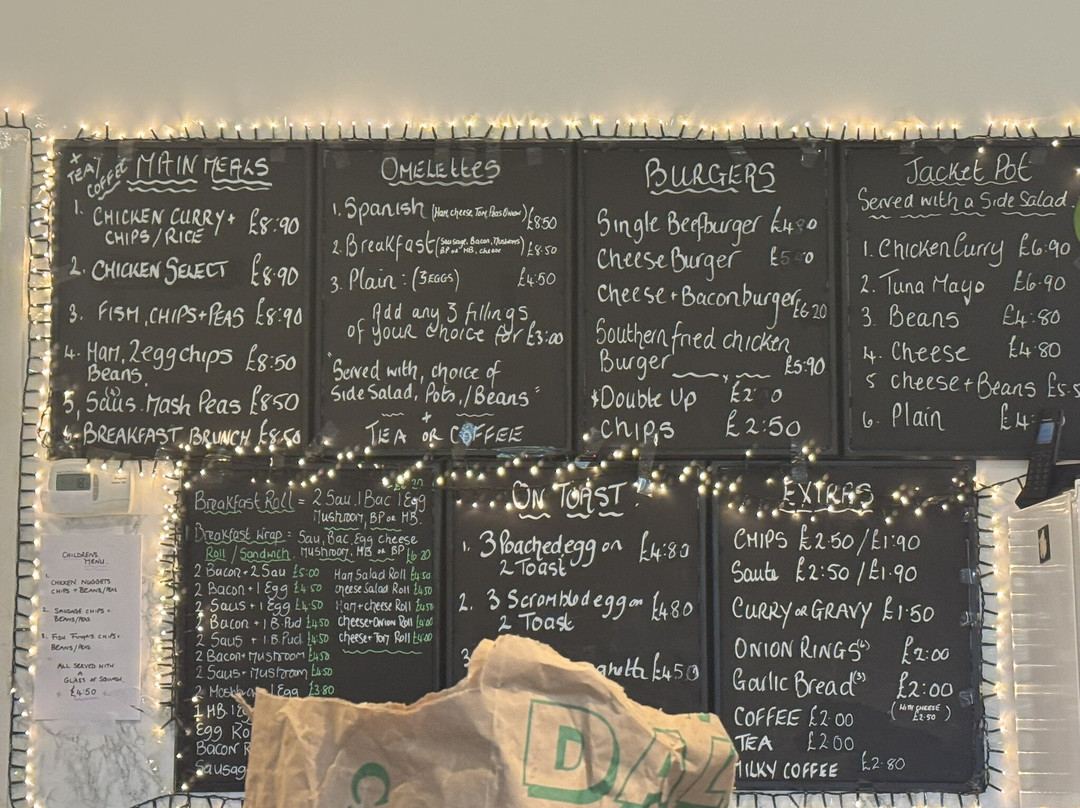 + TEA/ COFFEE
MAIN MEALS
1. CHICKEN CURRY + CHIPS / RICE £8.90
2. CHICKEN SELECT £8.90
3. FISH, CHIPS + PEAS £8.90
4. HAM, 2 egg chips Beans. £8.50
5, Saus. Mash Peas £8.50
6. BREAKFAST BRUNCH £8.50
OMELETTES
1. Spanish (Ham, cheese, Tom, Peas, Onion) £8.50
2. Breakfast (Sausage, Bacon, Mushrooms BP or HB, cheese £8.50
3. Plain : (3 EGGS) £4.50
Add any 3 fillings
of your choice for £3:00
"Served with, choice of
Side Salad, Pots, /Beans"
+
TEA OR COFFEE
BURGERS
Single Beefburger
Cheese Burger
Cheese + Bacon burger £6.20
Southern fried chicken
Burger £5.90
+ Double Up
Chips £2:50
Jacket Pot
Served with a Side Salad.
1. Chicken Curry £6.90
2. Tuna Mayo £6.90
3. Beans £4:80
4. Cheese £4:80
5 cheese + Beans
6. Plain
CHILDRENS MENU
1. CHICKEN NUGGETS
CHIPS + BEANS/PEAS
2. SAUSAGE CHIPS +
BEANS/PEAS
3. FISH FINGERS CHIPS +
BEANS/PEAS
ALL SERVED WITH
A
GLASS OF SQUASH
£4:50
Breakfast Roll = 2 Sau, 1 Bac 1 Egg
Mushroom, BP or HB.
Breakfast Wrap = Sau, Bac, Egg cheese
Roll / Sandwich. Mushroom, HB or BP £6.20
2 Bacon + 2 Sau £5:00
2 Bacon + 1 Egg £4.50
2 Saus + 1 Egg £4.50
2 Bacon + 1 B.Pud £4.50
2 Saus + 1 B.Pud £4.50
2 Bacon + Mushroom £4.50
2 Saus + Mushroom £4.50
1 Egg £3.80
1 HB.
Egg
Bacon
Ham Salad Roll £4.50
cheese Salad Roll £4.50
Ham + cheese Roll £4.50
cheese + Onion Roll £4.00
cheese + Tom Roll £4.00
ON TOAST
1. 3 Poached egg on
2 Toast £4:80
2. 3 Scrambled egg on
2 Toast £4.80
3 £4.50
EXTRAS
CHIPS £2:50 / £1:90
Saute £2:50 / £1.90
CURRY or GRAVY £1:50
ONION RINGS(6) £2:00
Garlic Bread(3) £2:00
(WITH CHEESE £2:50)
COFFEE £2:00
TEA £2:00
MILKY COFFEE £2.80
DAL